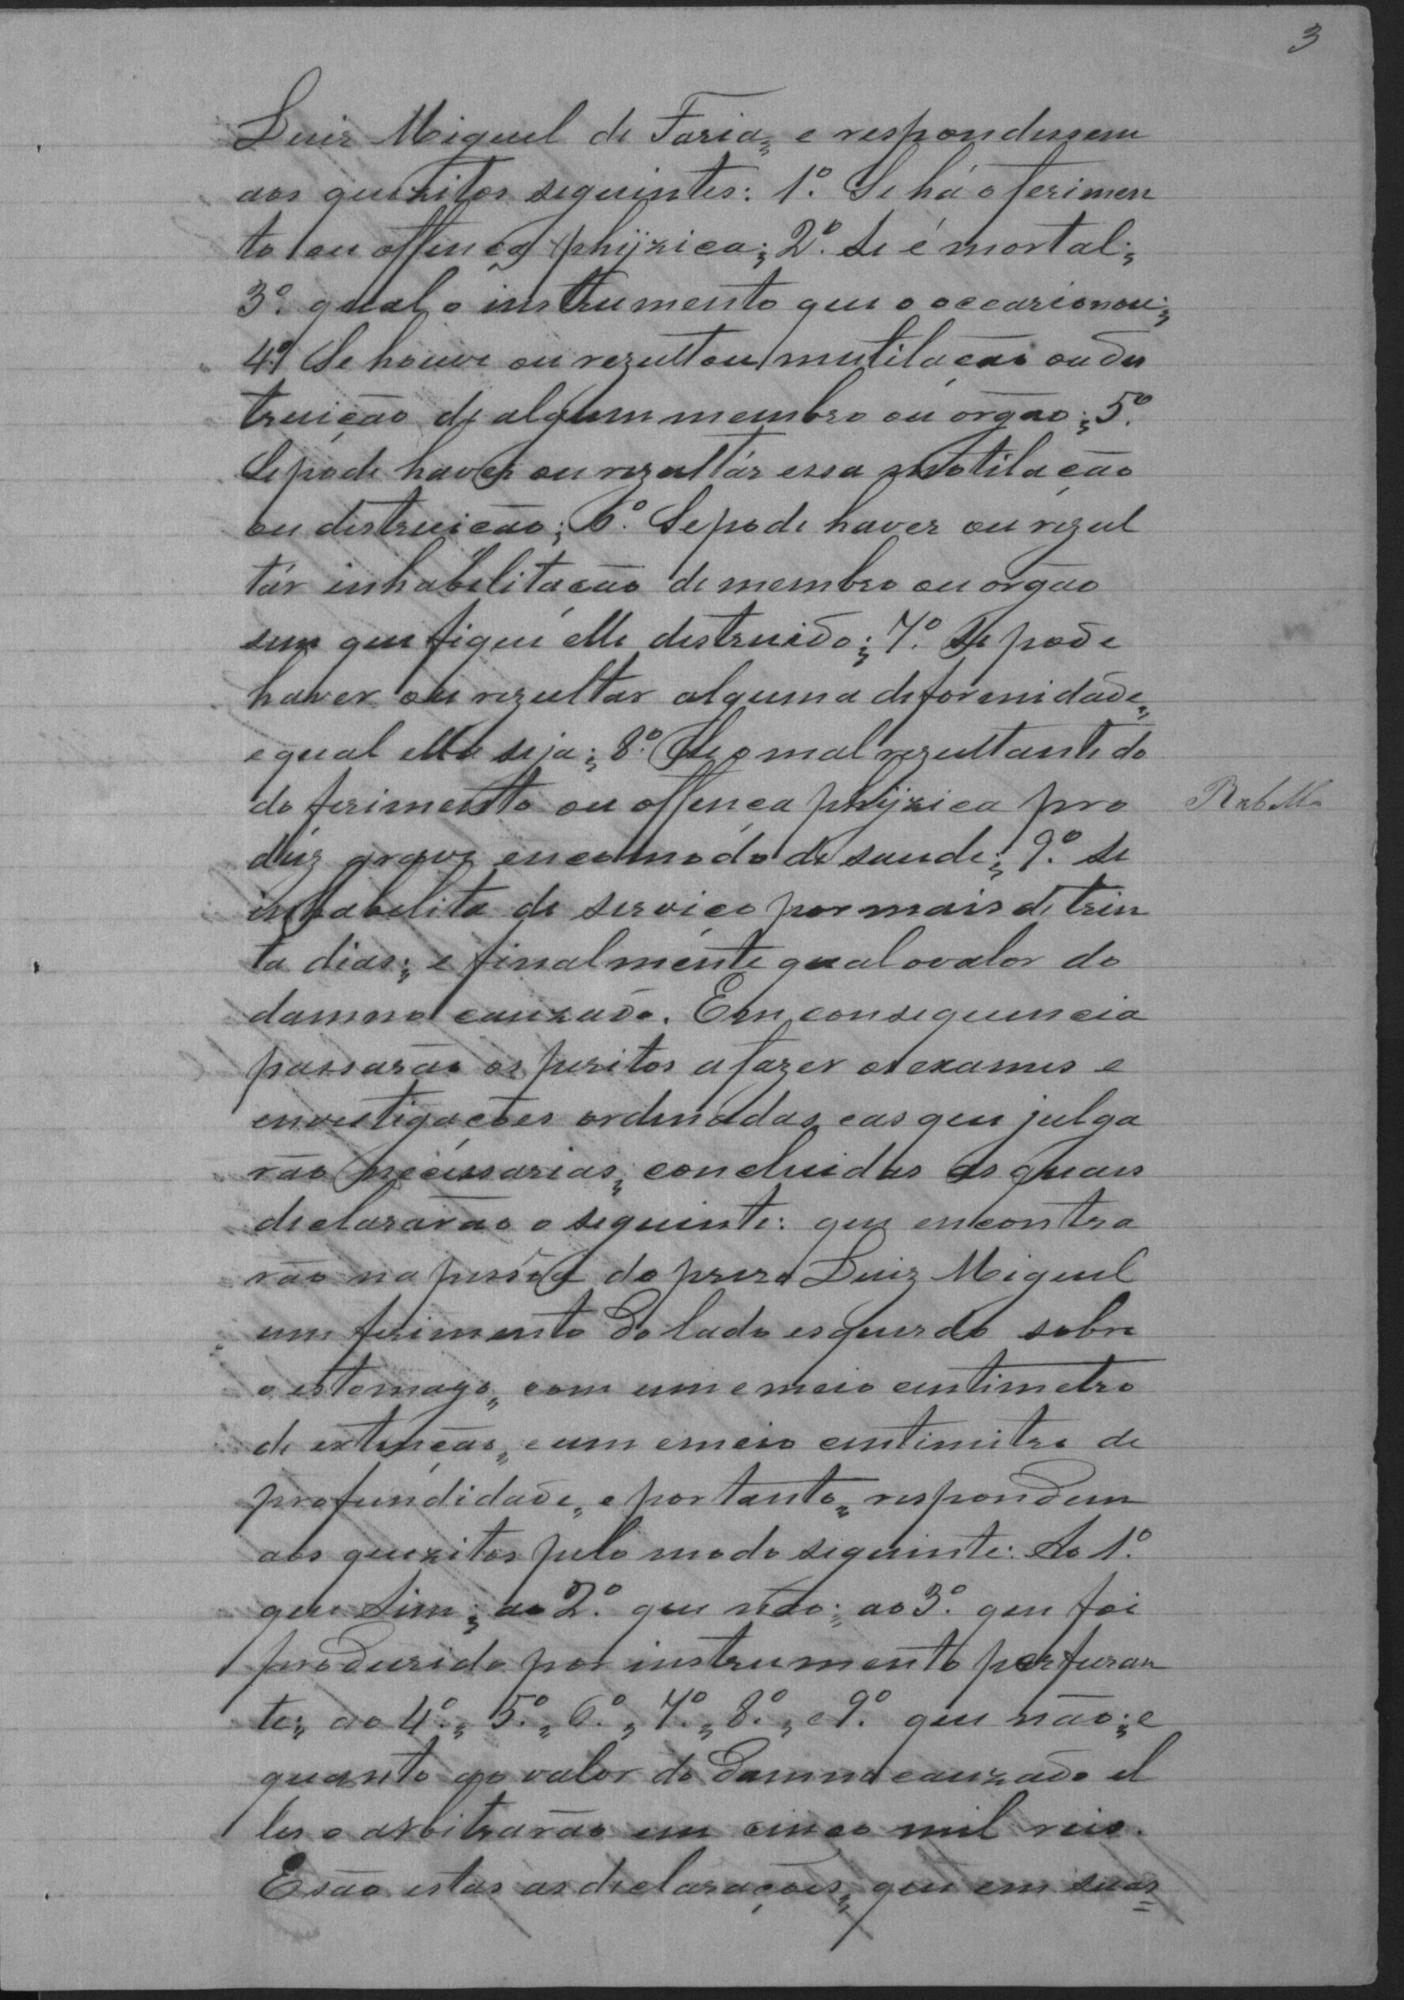 3
Luiz Miguel de Faria, e respondessem
aos quezitos seguintes: 1º. Se há o ferimen
to ou offença phÿzica; 2º. se é mortal;
3º. qual o instrumento que o occazionou;
4º. Se houve ou rezultou mutilação ou des
truição de algum membro ou orgão; 5º.
Se pode haver ou rezultár essa motilação
ou distruição; 6º. Se pode haver ou rezul
tár inhabilitação de membro ou orgão
sem que fique elle distruido; 7º. Se pode
haver ou rezultar alguma deformidade,
e qual ella seja; 8º. Se o mal rezultante do
do ferimento ou offença phÿzica pro
Rabello
duz grave encomodo de saude; 9º. se
inhabilita de serviço por mais de trin
ta dias; e finalmente qual o valor do
damno cauzado. Em consequencia
passarão os peritos a fazer os exames e
envestigações ordenadas, e as que julga
rão necessarias, concluidas as quais
declararão o seguinte: que encontra
rão na pessôa do prezo Luiz Miguel
um ferimento do lado esquerdo sobre
o estomago, com um e meio centimetro
de extenção, e um e meio centimitro de
profundidade, e portanto, respondem
aos quezitos pelo modo seguinte: Ao 1º.
que Sim; ao 2º. que não; ao 3º. que foi
produzido por instrumento perfuran
te; ao 4º., 5º., 6º., 7º., 8º., e 9º. que não; e
quanto ao valor do damno cauzado el
les o arbitrarão em cinco mil reis.
E são estas as declarações, que em suas